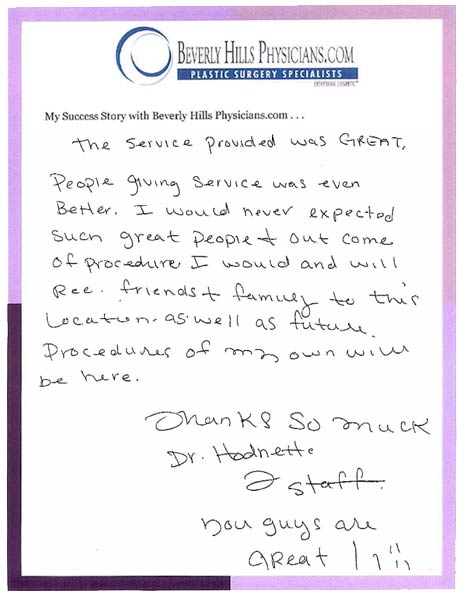 BEVERLY HILLS PHYSICIANS.COM
PLASTIC SURGERY SPECIALISTS
EVERYTHING COSMETIC
My Success Story with Beverly Hills Physicians.com . . .
The Service Provided was GREAT.
People giving Service was even
Better. I would never expected
such great people + out come
of procedure I would and will
Rec. friends + family to this
Location. as well as future
Procedures of my own will
be here.
Thanks So muck
Dr. Hodnette
& staff.
you guys are
GReat !